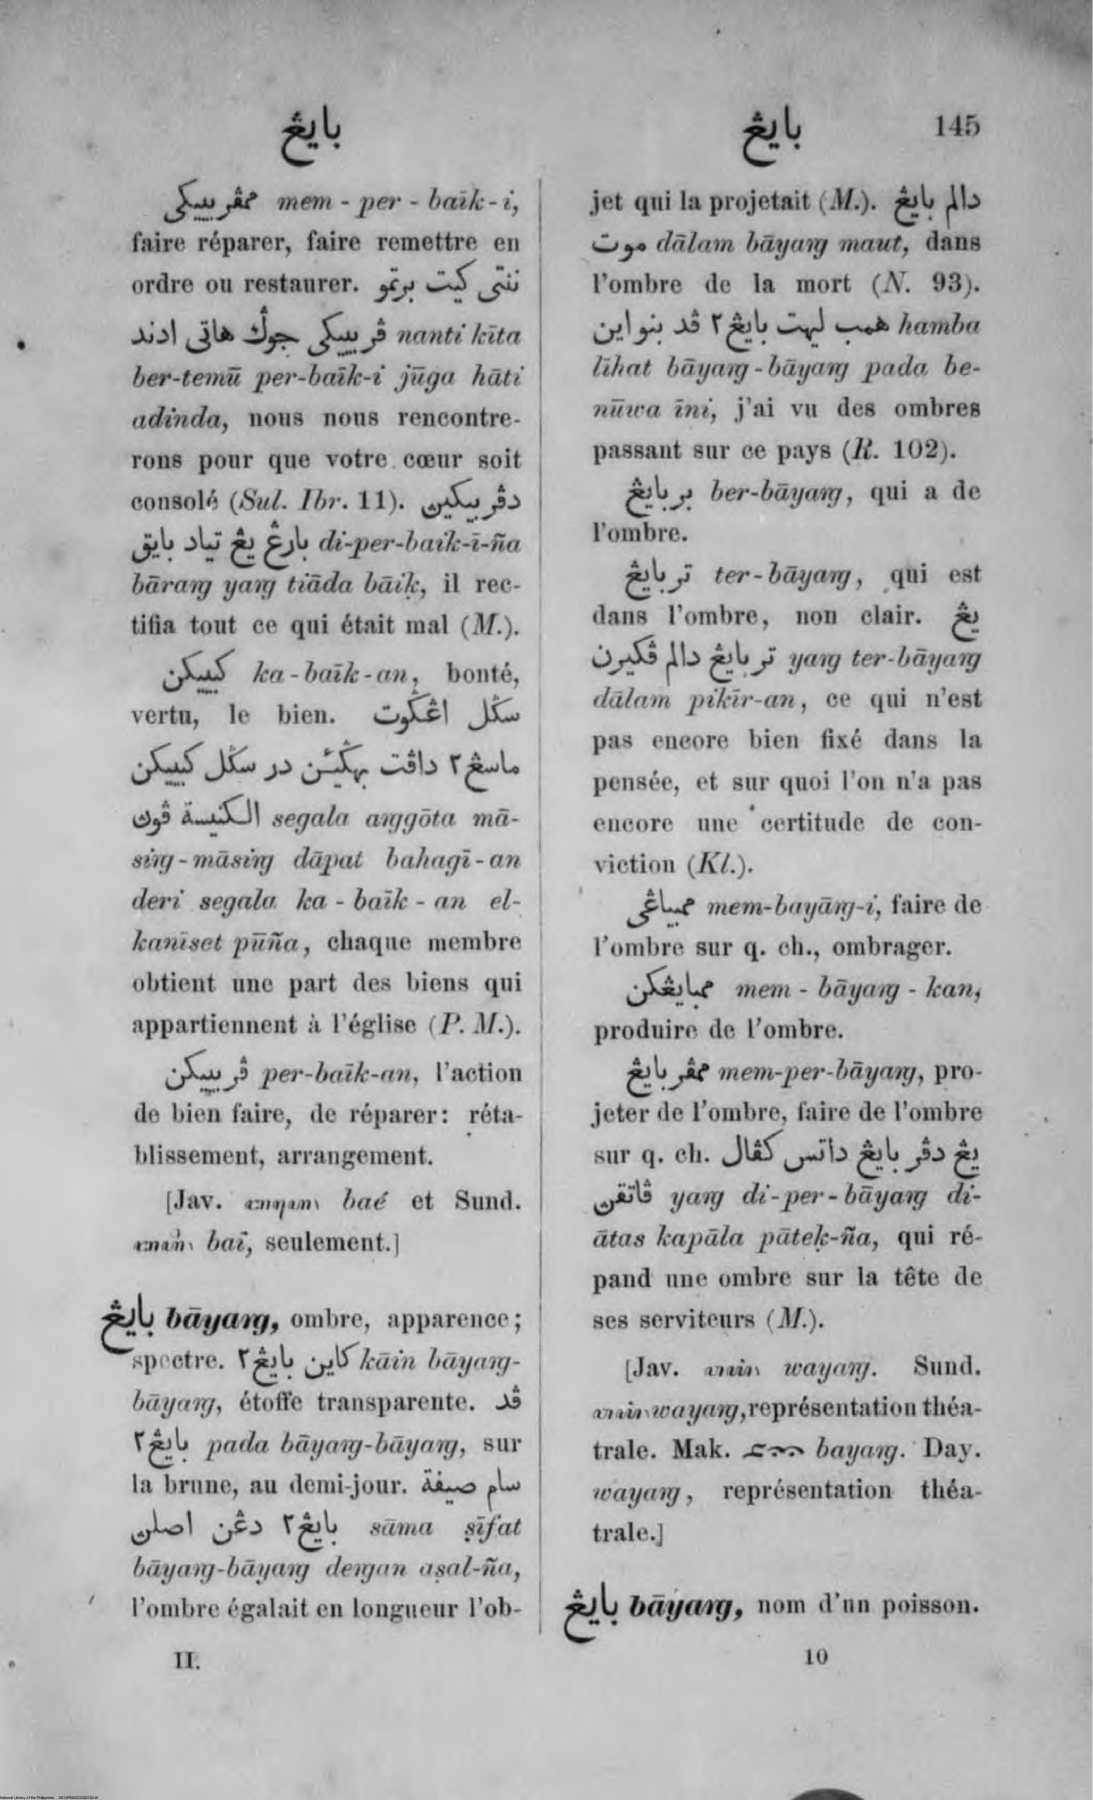 بايڠ
بايڠ 145
ممڤربيكي mem - per - baïk - i,
faire réparer, faire remettre en
ordre ou restaurer. ننتي كيت برتمو
ڤربيكي جوڬ هاتي ادند nanti kīta
ber-temū per-baïk-i jūga hāti
adinda, nous nous rencontre-
rons pour que votre cœur soit
consolé (Sul. Ibr. 11). دڤربيكين
بارڠ يڠ تياد بايق di-per-baïk-ī-ña
bāraŋ yaŋ tiāda bāiḳ, il rec-
tifia tout ce qui était mal (M.).
كبيكن ka - baïk - an, bonté,
vertu, le bien. سڬل اڠڬوت
ماسڠ٢ داڤت بهڬيئن در سڬل كبيكن
الكنيسة ڤوڽ segala aŋgōta mā-
siŋ - māsiŋ dāpat bahagī - an
deri segala ka - baïk - an el-
kanīset pūña, chaque membre
obtient une part des biens qui
appartiennent à l'église (P. M.).
ڤربيكن per-baïk-an, l'action
de bien faire, de réparer: réta-
blissement, arrangement.
[Jav. baé et Sund.
baï, seulement.]
بايڠ bāyaŋ, ombre, apparence;
spectre. كاين بايڠ٢ kāin bāyaŋ-
bāyaŋ, étoffe transparente. ڤد
بايڠ٢ pada bāyaŋ-bāyaŋ, sur
la brune, au demi-jour. سام صيفة
بايڠ٢ دڠن اصلن sāma ṣīfat
bāyaŋ-bāyaŋ deŋan aṣal-ña,
l'ombre égalait en longueur l'ob-
II.
jet qui la projetait (M.). دالم بايڠ
موت dālam bāyaŋ maut, dans
l'ombre de la mort (N. 93).
همب ليهت بايڠ٢ ڤد بنو اين hamba
līhat bāyaŋ - bāyaŋ pada be-
nūwa īni, j'ai vu des ombres
passant sur ce pays (R. 102).
بربايڠ ber-bāyaŋ, qui a de
l'ombre.
تربايڠ ter-bāyaŋ, qui est
dans l'ombre, non clair. يڠ
تربايڠ دالم ڤكيرن yaŋ ter-bāyaŋ
dālam pikīr-an, ce qui n'est
pas encore bien fixé dans la
pensée, et sur quoi l'on n'a pas
encore une certitude de con-
viction (Kl.).
ممبياڠي mem-bayāŋ-i, faire de
l'ombre sur q. ch., ombrager.
ممبايڠكن mem - bāyaŋ - kan,
produire de l'ombre.
ممڤربايڠ mem-per-bāyaŋ, pro-
jeter de l'ombre, faire de l'ombre
sur q. ch. يڠ دڤربايڠ داتس كڤال
ڤاتقن yaŋ di-per-bāyaŋ di-
ātas kapāla pāteḳ-ña, qui ré-
pand une ombre sur la tête de
ses serviteurs (M.).
[Jav. wayaŋ. Sund.
wayaŋ, représentation théa-
trale. Mak. bayaŋ. Day.
wayaŋ, représentation théa-
trale.]
بايڠ bāyaŋ, nom d'un poisson.
10